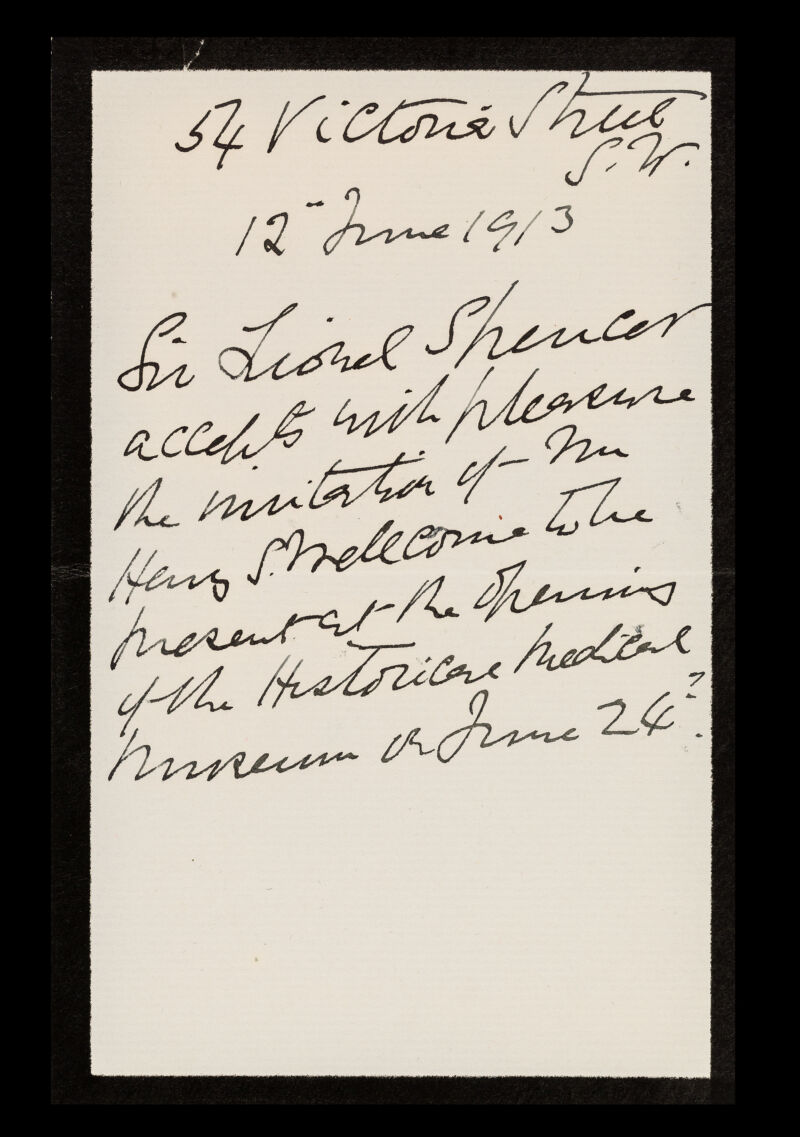 54 Victoria Street
S.W.
12" June 1913
Sir Lionel Spencer
accepts with pleasure
the invitation of Mr
Henry S. Wellcome to be
present at the opening
of the Historical Medical
Museum on June 24".